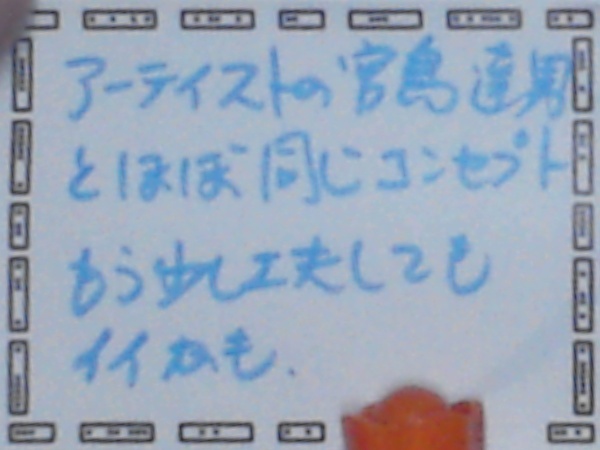 アーティストの宮島達男
とほぼ同じコンセプト
もう少し工夫しても
イイかも.